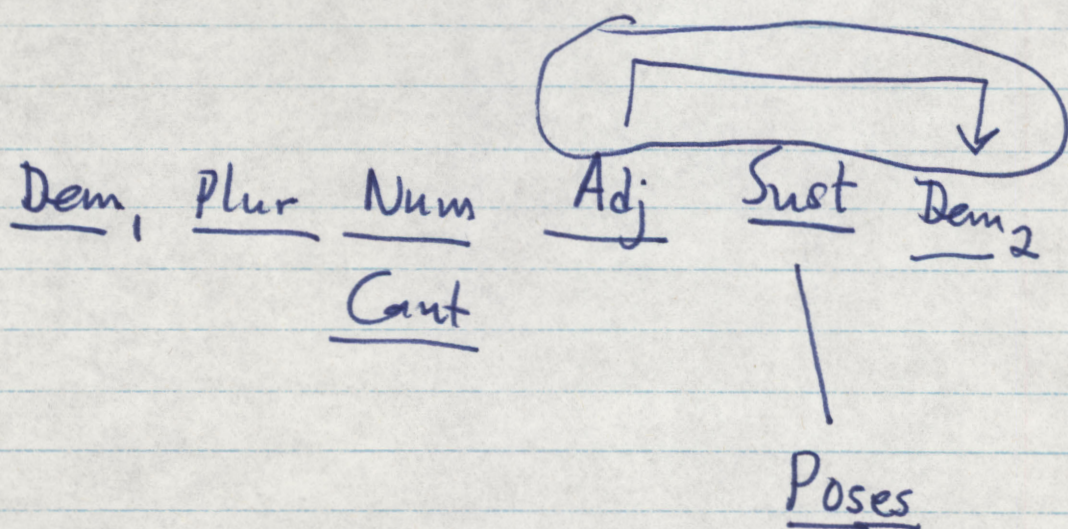 Dem₁ Plur Num Adj Sust Dem₂
Cant
Poses